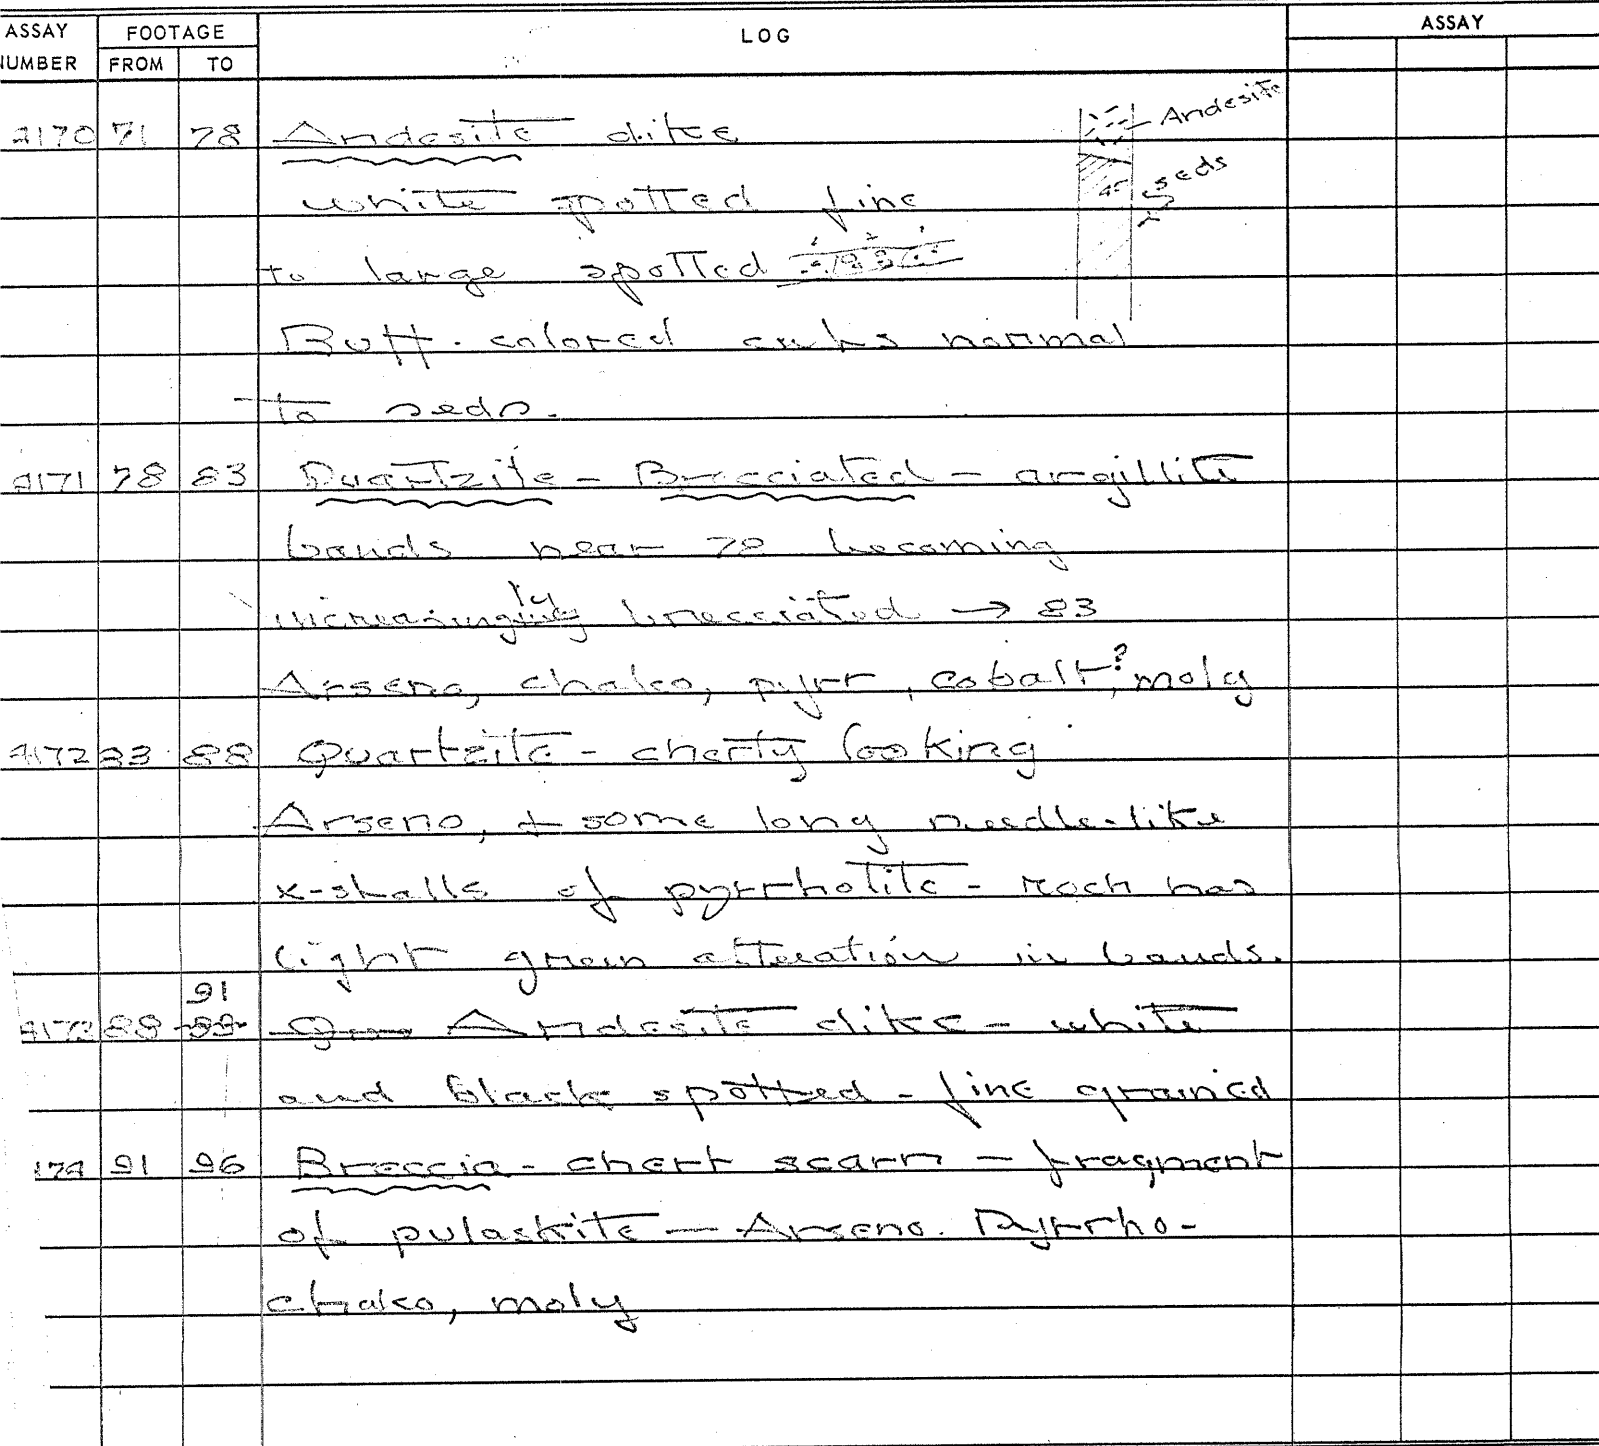 ASSAY FOOTAGE LOG ASSAY
NUMBER FROM TO
4170 71 78 Andesite dike
Andesite
white spotted fine
seds
45
to large spotted
Buff-colored cuts normal
to seds.
4171 78 83 Quartzite - Brecciated - argillite
bands near 78 becoming
increasingly brecciated → 83
Arseno, chalco, pyrr, cobalt?, moly
4172 83 88 Quartzite - cherty looking
Arseno, + some long needle-like
x-stalls of pyrrhotite - rock has
light green alteration in bands.
91
4173 88 Andesite dike - white
and black spotted - fine grained
174 91 96 Breccia - chert scarn - fragment
of pulaskite - Arseno. Pyrrho-
chalco, moly